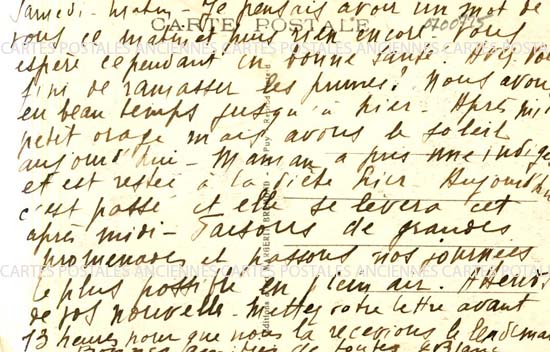 Samedi - matin - Je pensais avoir un mot de
CARTE POSTALE
vous ce matin et puis rien encore. Vous
espère cependant en bonne santé. Avez vous
fini de ramasser les prunes? Nous avons
eu beau temps jusqu'à hier - Après midi
petit orage mais avons le soleil
aujourd'hui - Maman a pris une indig
et est restée à la diète hier Aujourd'hui
c'est passé et elle se lèvera cet
après midi - Faisons de grandes
promenades et passons nos journées
CARTES POSTALES ANCIENNES CARTES POSTALES ANCIENNES CARTES POSTALES
le plus possible en plein air.
de vos nouvelle - Mettez votre lettre avant
13 heures pour que nous la recevions le lendemain
de toutes